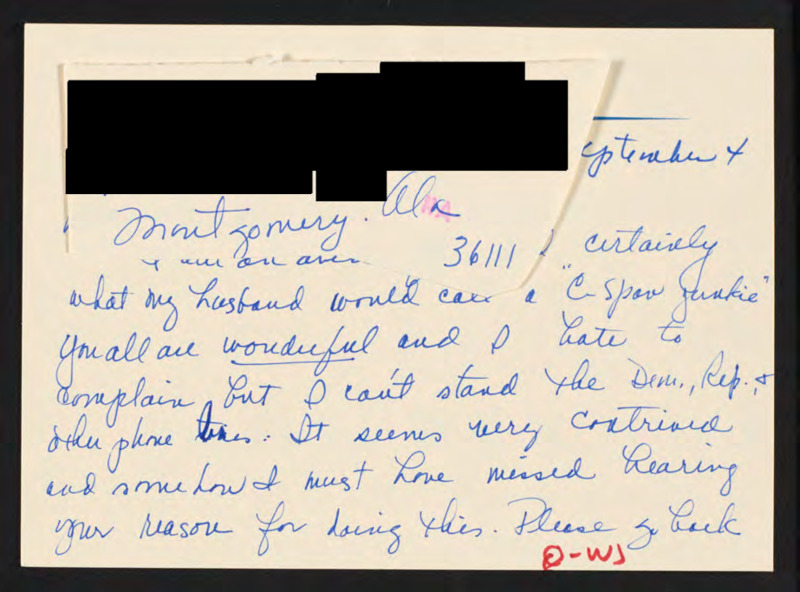 eptember 4
Montgomery. Ala
36111
certainly
what my husband would call a "C-Span junkie"
You all are wonderful and I hate to
complain but I can't stand the Dem., Rep., &
other phone lines. It seems very contrived
and somehow I must have missed hearing
your reason for doing this. Please go back
-WJ